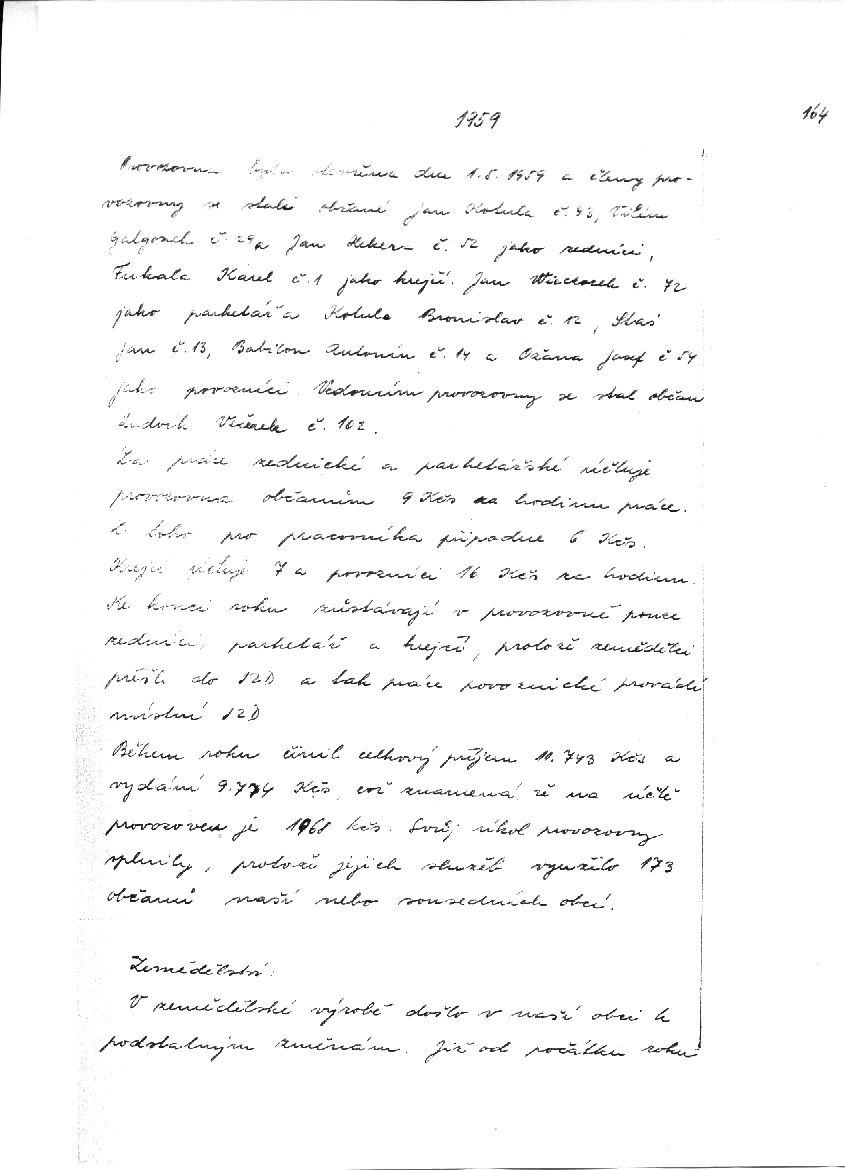 1959
164
Provozovna byla otevřena dne 1.5.1959 a členy pro-
vozovny se stali občané Jan Kotula č. 93, Vilém
č. 29 a Jan Hekera č. 52 jako zedníci,
Fukala Karel č. 1 jako krejčí. Jan Wieczorek č. 72
jako parketář a Kotula Bronislav č. 12, Staś
Jan č. 13, Babilon Antonín č. 14 a Ožana Josef č 54
jako povozníci. Vedoucím provozovny se stal občan
č. 102.
Za práce zednické a parketářské účtuje
provozovna občanům 9 Kčs za hodinu práce.
Z toho pro pracovníka připadne 6 Kčs.
Krejčí účtuje 7 a povozníci 16 Kčs za hodinu.
Ke konci roku zůstávají v provozovně pouze
zedníci, parketář a krejčí, protože zemědělci
přešli do JZD a tak práce povoznické provádí
místní JZD
Během roku činil celkový příjem 11.743 Kčs a
vydání 9.774 Kčs, což znamená že na účtě
provozoven je 1968 kčs. Svůj úkol provozovny
splnily, protože jejich služeb využilo 173
občanů naší nebo sousedních obcí.
Zemědělství:
V zemědělské výrobě došlo v naší obci k
podstatným změnám. Již od počátku roku